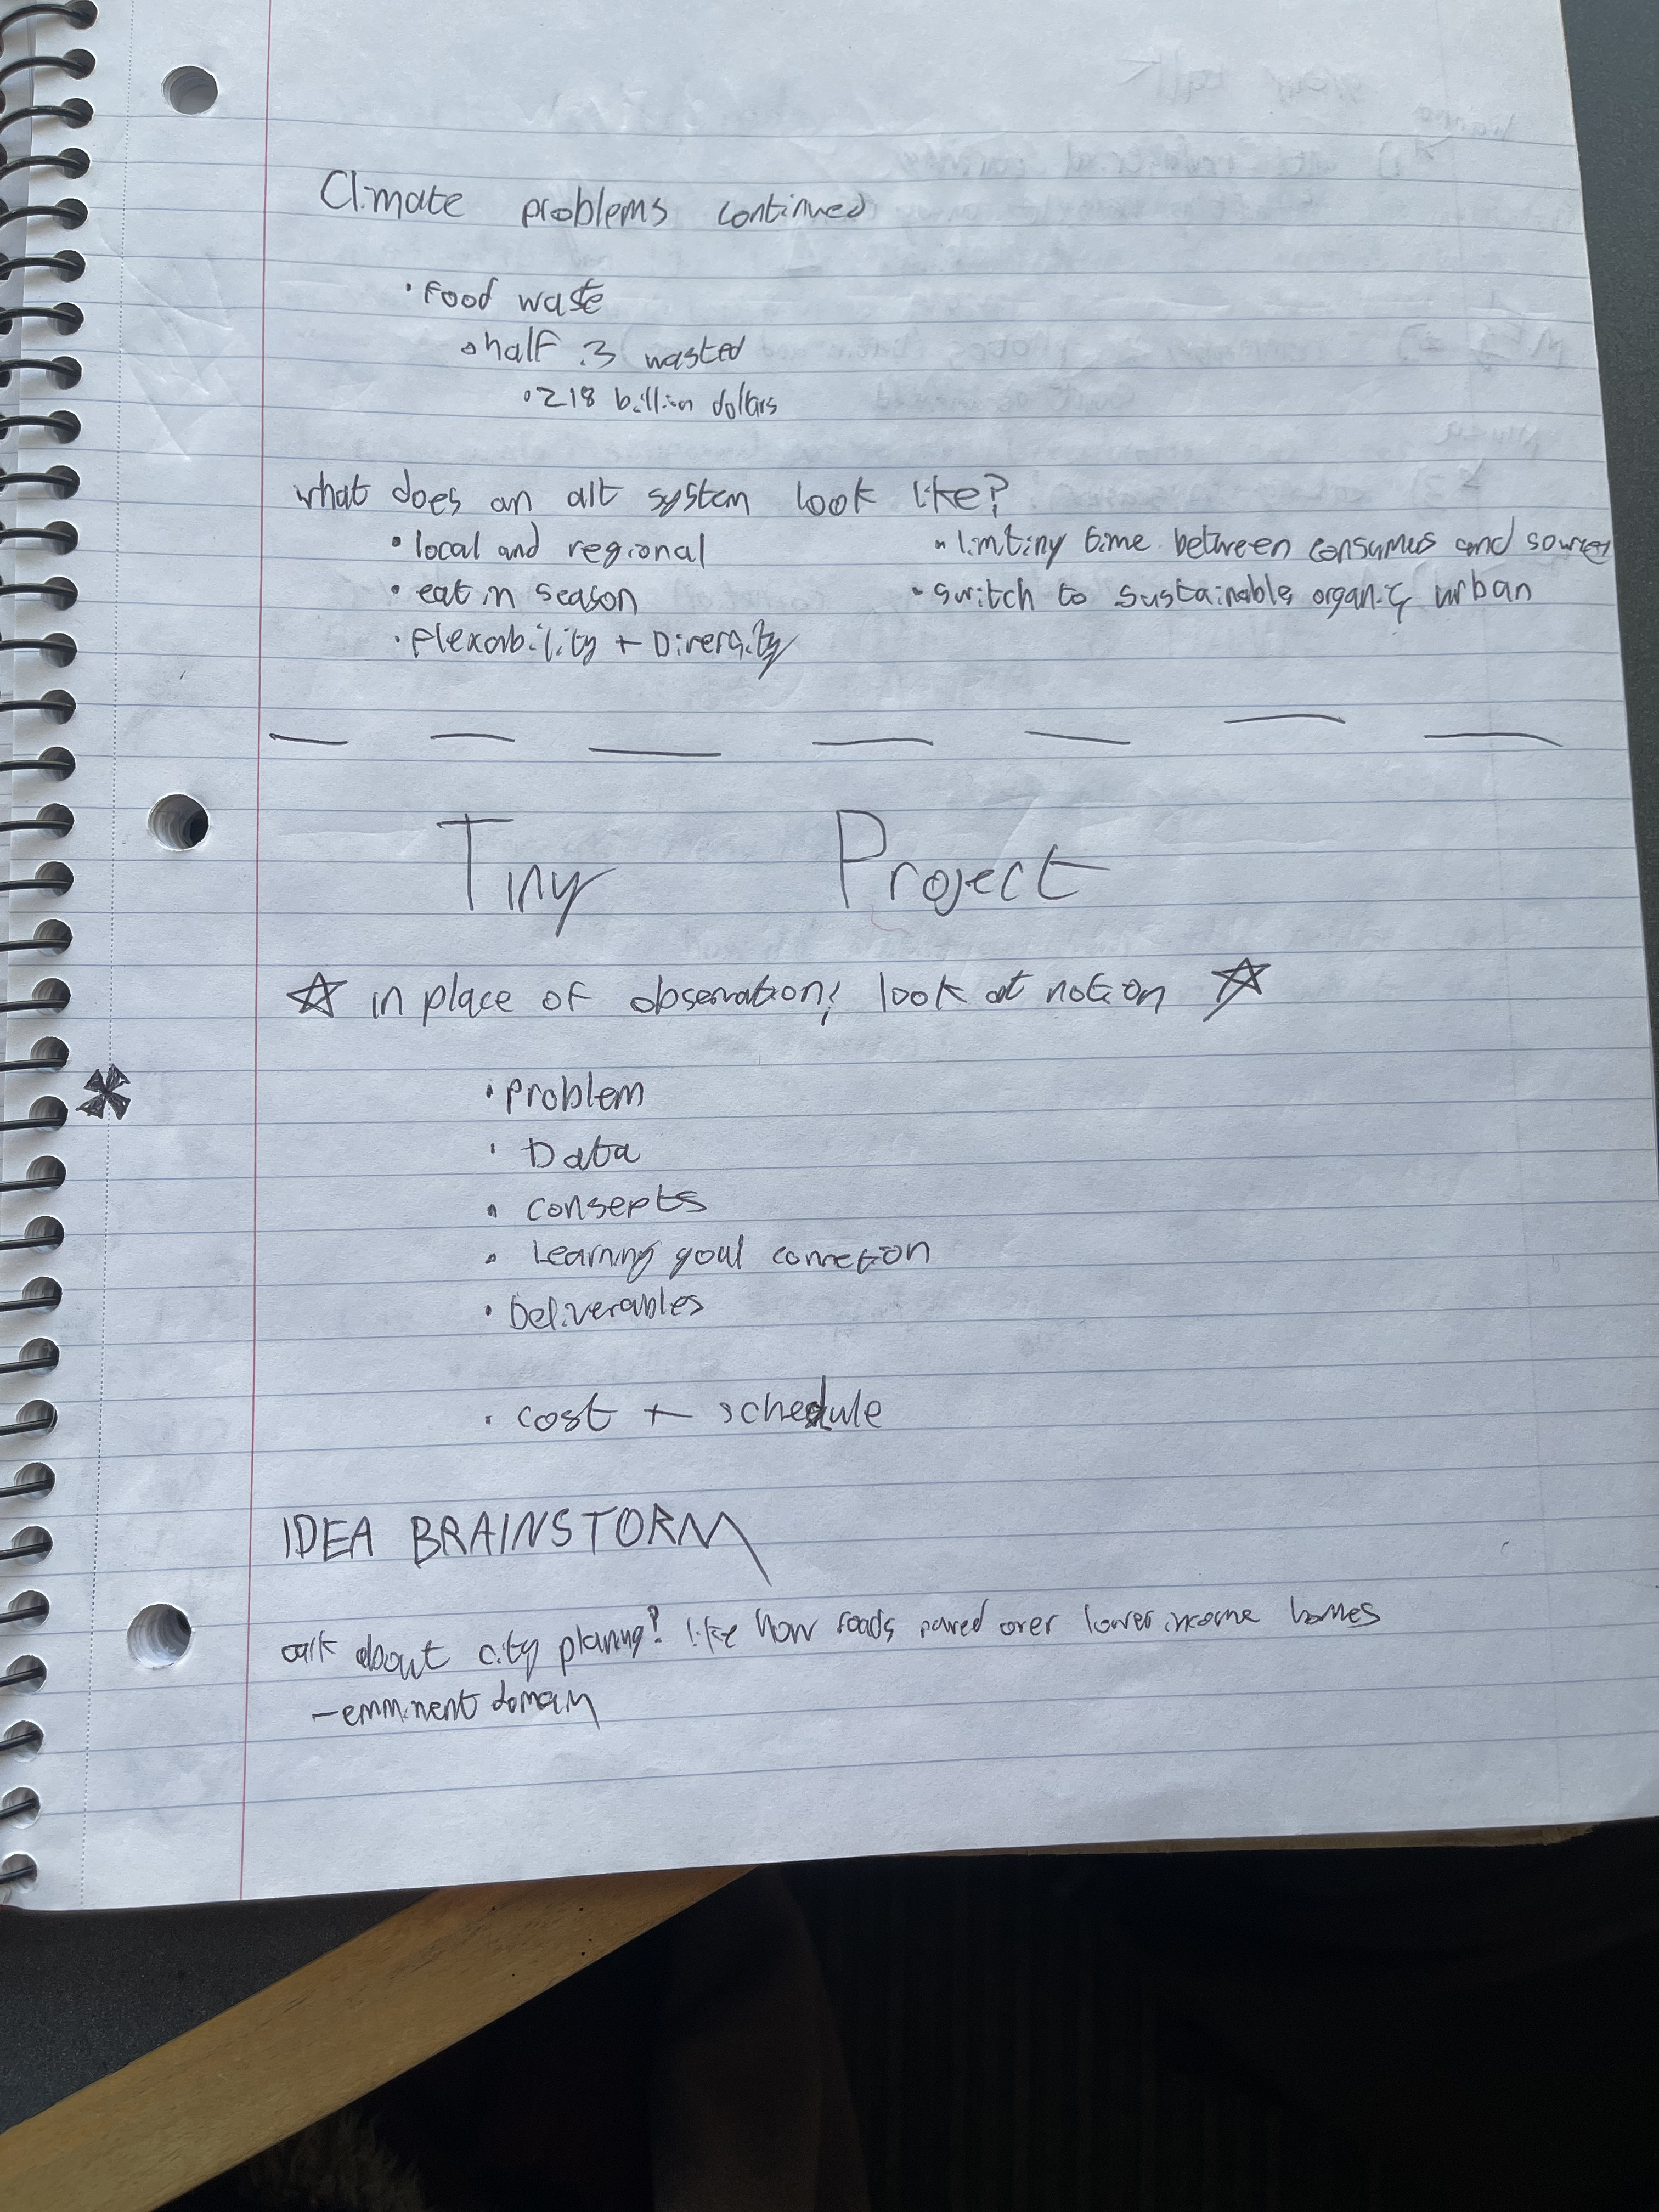 Climate problems continued
• Food waste
half is wasted
• 218 billion dollars
what does an alt system look like?
• local and regional
• eat in season
• Flexability + Diversity
• limiting time between consumers and sources
• switch to sustainable, organic, urban
Tiny Project
☆ in place of observation; look at notion ☆
• Problem
• Data
• consepts
• Learning goal connection
• Deliverables
• cost + schedule
IDEA BRAINSTORM
talk about city planing? like how roads paved over lower income homes
— emminent domain